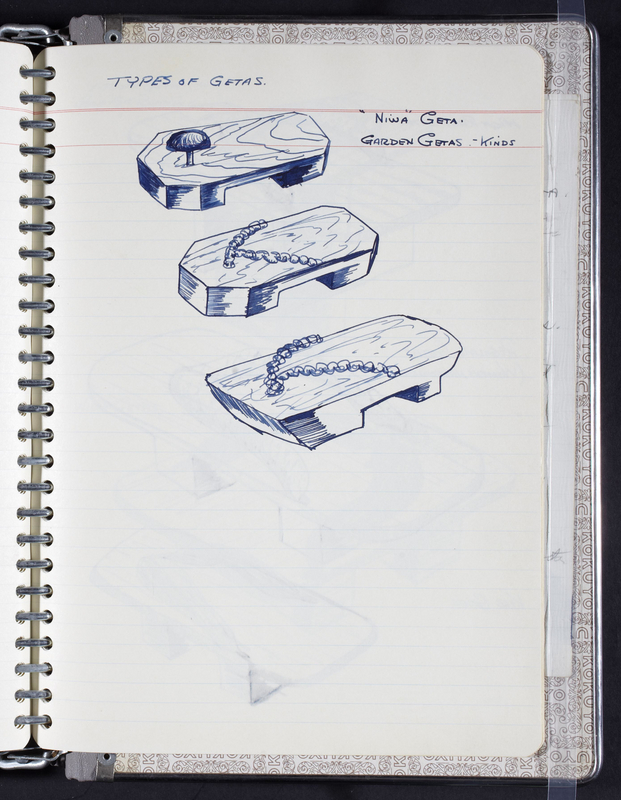 TYPES OF GETAS.
"Niwa" GETA.
GARDEN GETAS - KiNDS
KOKUYO